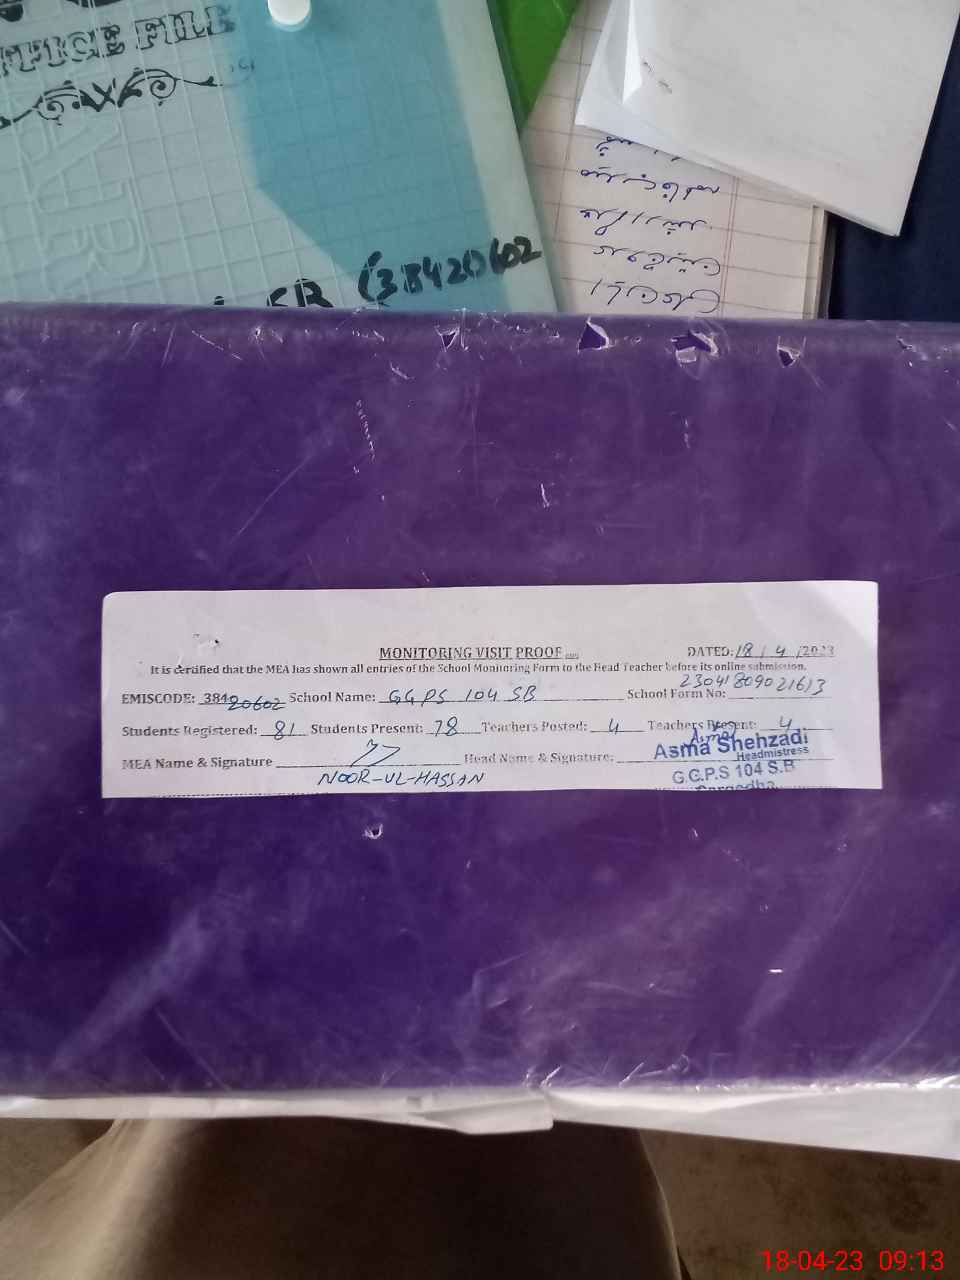 OFFICE FILE
SB (38420602
MONITORING VISIT PROOF
DATED: 18 / 4 /2023
It is certified that the MEA has shown all entries of the School Monitoring Form to the Head Teacher before its online submission.
EMISCODE: 38420602 School Name: GGPS 104 SB School Form No: 23041809021613
Students Registered: 81 Students Present: 78 Teachers Posted: 4 Teachers Present: 4
MEA Name & Signature Head Name & Signature:
NOOR-UL-HASSAN
Asma
Asma Shehzadi
Headmistress
G.G.P.S 104 S.B
Sargodha
18-04-23 09:13